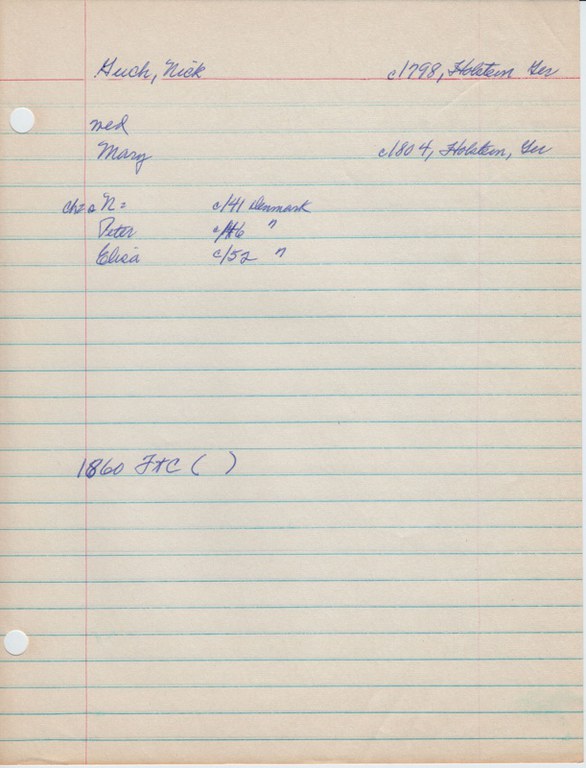 Guch, Nick c1798, Holstein Ger
wed
Mary c1804, Holstein, Ger
ch: N: c/41 Denmark
Peter c/46 "
Elisa c/52 "
1860 FTC ( )